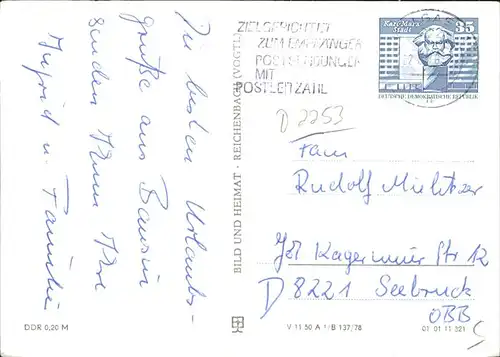 Die besten Urlaubs-
grüße aus Bansin
senden Ihnen Ihre
Ingrid u. Familie
DDR 0,20 M
BILD UND HEIMAT · REICHENBACH (VOGTL)
ZIELGERICHTET
ZUM EMPFÄNGER
POSTSENDUNGEN
MIT
POSTLEITZAHL
Karl-Marx-
Stadt
35
DEUTSCHE DEMOKRATISCHE REPUBLIK
D 2253
Fam
Rudolf
12
D 8221 Seebruck
OBB
V 11 50 A 1/B 137/78
01 01 11 321